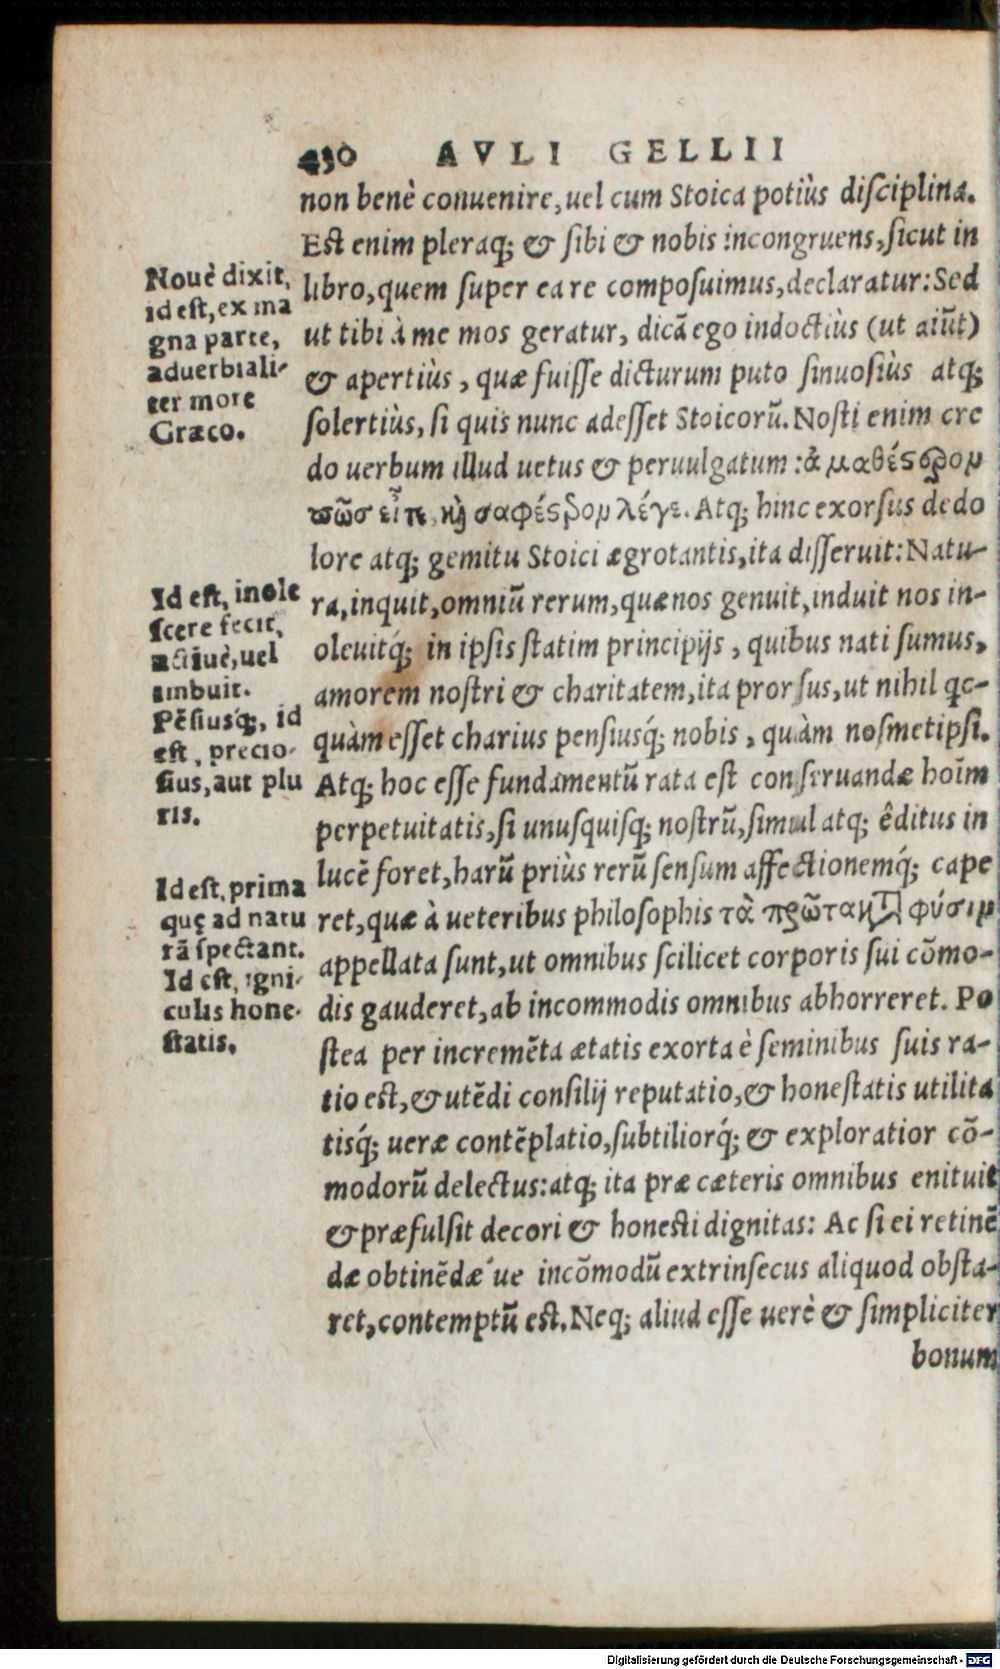 430 AVLI GELLII
non benè conuenire, uel cum Stoica potiùs disciplina.
Est enim pleraq; & sibi & nobis incongruens, sicut in
libro, quem super ea re composuimus, declaratur: Sed
ut tibi à me mos geratur, dicā ego indoctiùs (ut aiūt)
& apertiùs, quæ fuisse dicturum puto sinuosiùs atq;
solertiùs, si quis nunc adesset Stoicorū. Nosti enim cre
do uerbum illud uetus & peruulgatum: ἀμαθέστρομ
πῶσ εἶπε, κὴ σαφέστρομ λέγε. Atq; hinc exorsus de do
lore atq; gemitu Stoici ægrotantis, ita disseruit: Natu-
ra, inquit, omniū rerum, quæ nos genuit, induit nos in-
oleuitq́; in ipsis statim principijs, quibus nati sumus,
amorem nostri & charitatem, ita prorsus, ut nihil qc-
quàm esset charius pensiusq́; nobis, quàm nosmetipsi.
Atq; hoc esse fundamentū rata est conseruandæ hoīm
perpetuitatis, si unusquisq; nostrū, simul atq; êditus in
lucē foret, harū priùs rerū sensum affectionemq́; cape
ret, quæ à ueteribus philosophis τὰ πρῶτα κτ φύσιμ
appellata sunt, ut omnibus scilicet corporis sui cōmo-
dis gauderet, ab incommodis omnibus abhorreret. Po
stea per incremēta ætatis exorta è seminibus suis ra-
tio est, & utēdi consilij reputatio, & honestatis utilita
tisq́; ueræ contēplatio, subtiliorq́; & exploratior cō-
modorū delectus: atq; ita præ cæteris omnibus enituit
& præfulsit decori & honesti dignitas: Ac si ei retinē
dæ obtinēdæ´ue incōmodū extrinsecus aliquod obsta-
ret, contemptū est. Neq; aliud esse uerè & simpliciter
bonum
Nouè dixit,
id est, ex ma
gna parte,
aduerbiali-
ter more
Græco.
Id est, inole
scere fecit,
actiuè, uel
imbuit.
Pēsiusq́;, id
est, precio-
sius, aut plu
ris.
Id est, prima
quę ad natu
rā spectant.
Id est, igni-
culis hone-
statis.
Digitalisierung gefördert durch die Deutsche Forschungsgemeinschaft - DFG